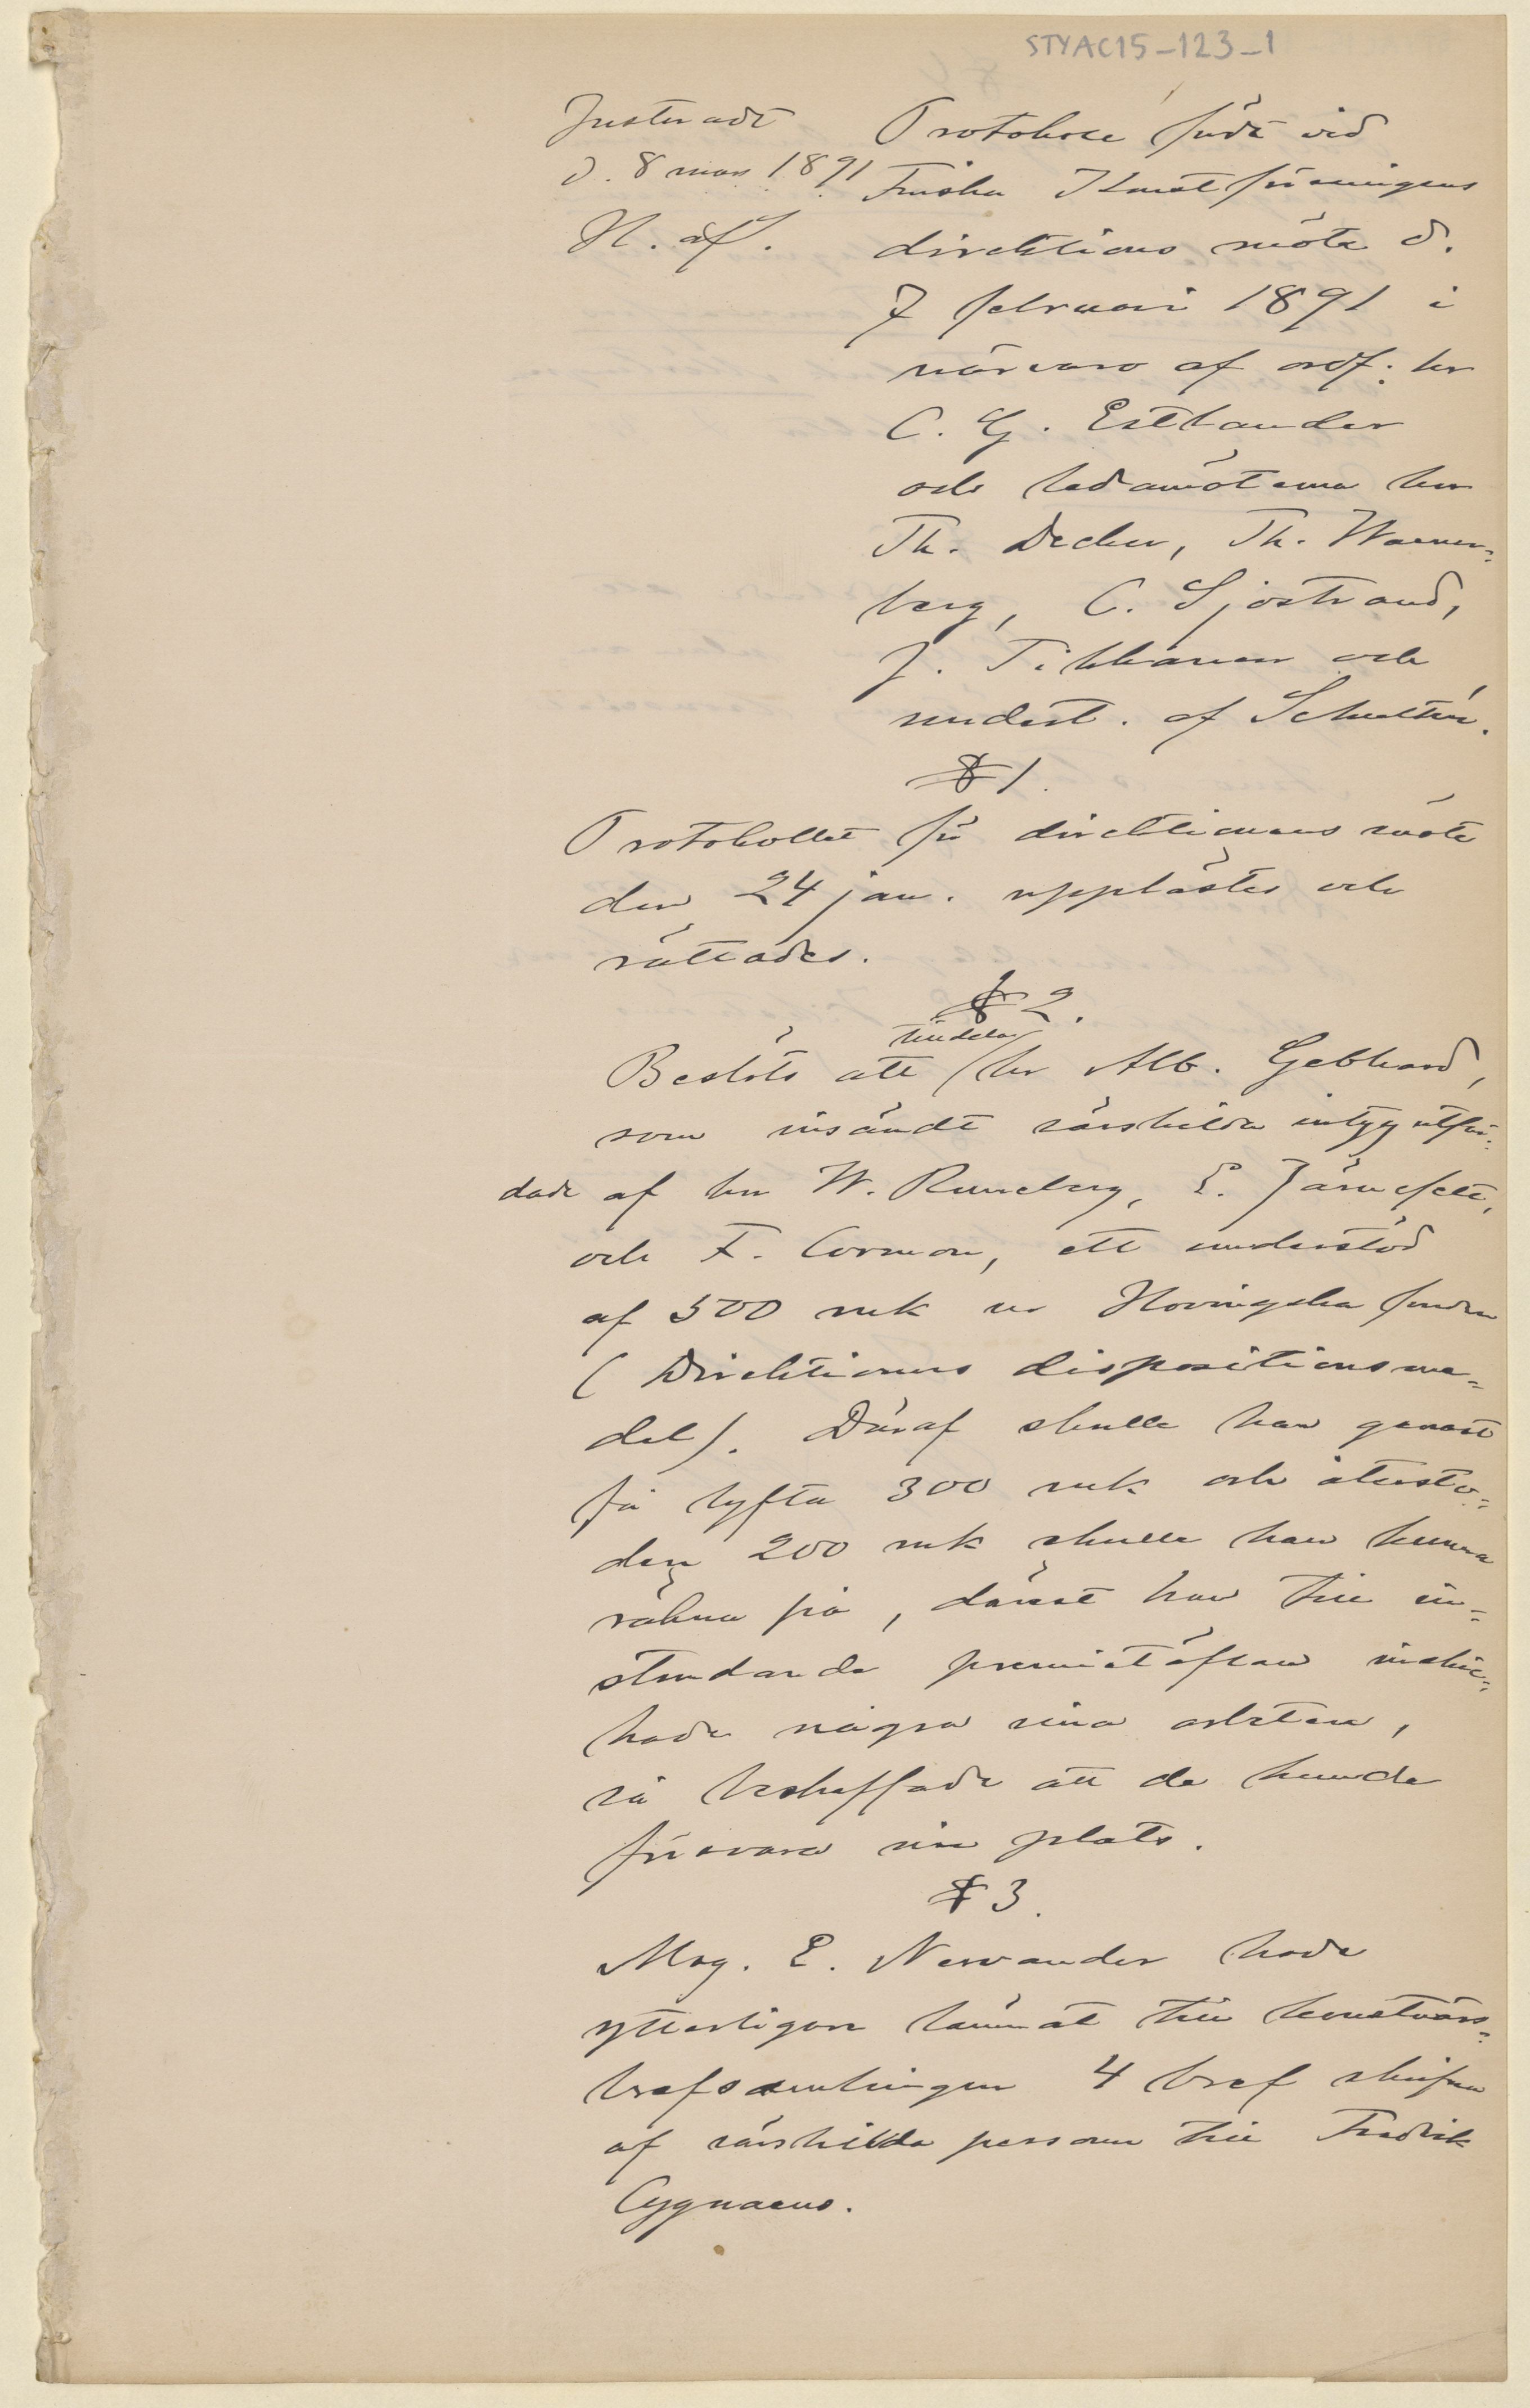 STYAC15-123-1
Justeradt
d. 8 mars 1891
H. af S.
Protokoll fördt vid
Finska Konstföreningens
direktions möte d.
7 februari 1891 i
närvaro af ordf. hr
C. G. Estlander
och ledamöterna hrr
Th. Decker, Th. Waener-
berg, C. Sjöstrand,
J. Tikkanen och
undert. af Schultén.
§ 1.
Protokollet för direktionens möte
den 24 jan. upplästes och
rättades.
§ 2.
Beslöts att tilldela hr Alb. Gebhard,
som insändt särskilda intyg utfär-
dade af hrr W. Runeberg, E. Järnefelt,
och F. Cormon, ett understöd
af 500 mk ur Hovingska fonden
(Direktionens dispositionsme-
del). Däraf skulle han genast
få lyfta 300 mk och återsto-
den 200 mk skulle han kunna
räkna på, därest han till in-
stundande premietäflan inskic-
kade några sina arbeten,
så beskaffade att de kunde
försvara sin plats.
§ 3.
Mag. E. Nervander hade
ytterligare lämnat till konstnärs-
brefsamlingen 4 bref skrifna
af särskilda personer till Fredrik
Cygnaeus.